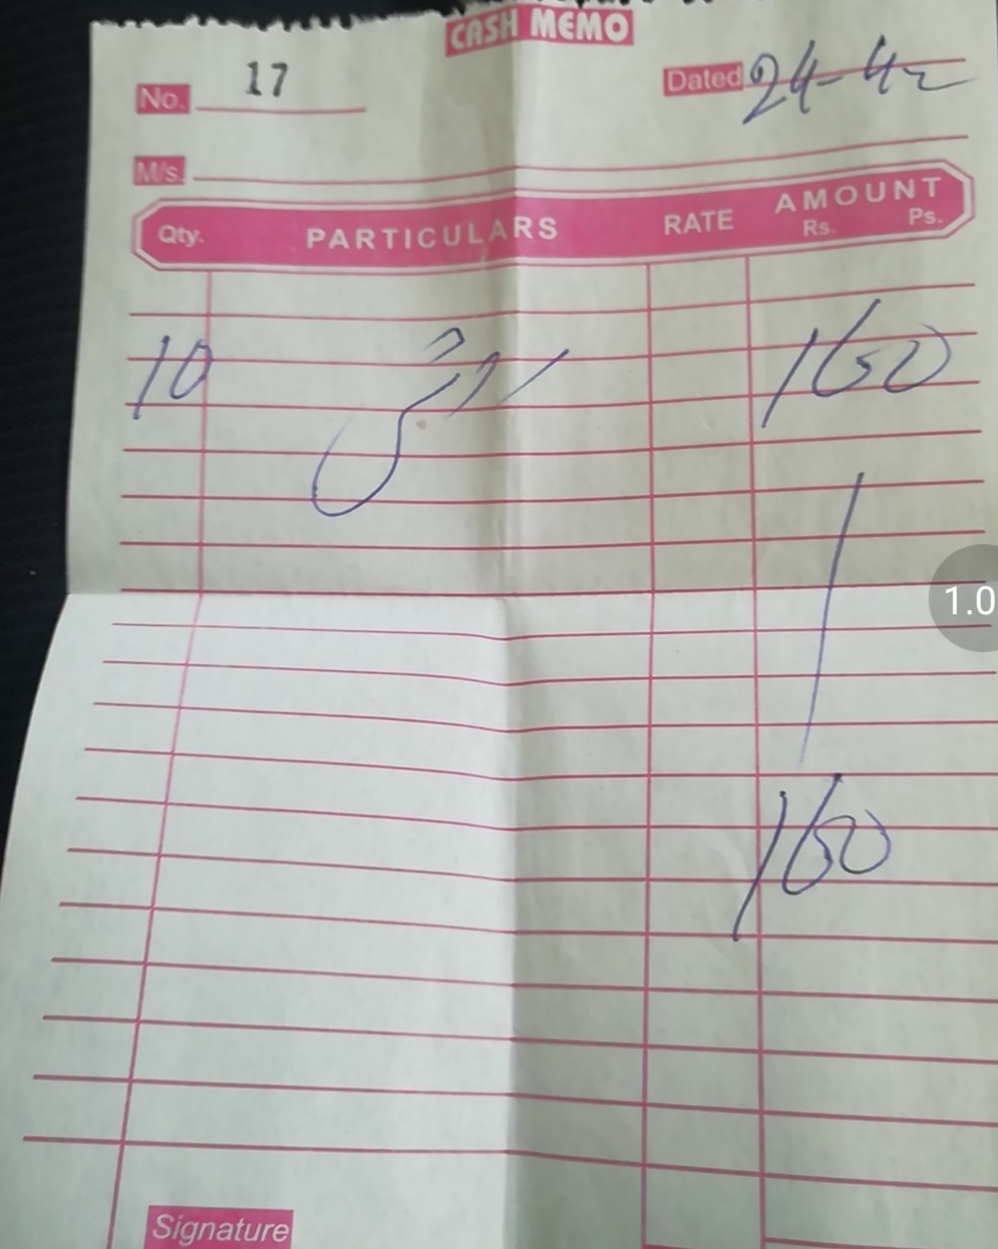 CASH MEMO
No. 17
Dated 24-4-
M/s.
Qty. PARTICULARS RATE AMOUNT
Rs. Ps.
10 160
1.0
160
Signature